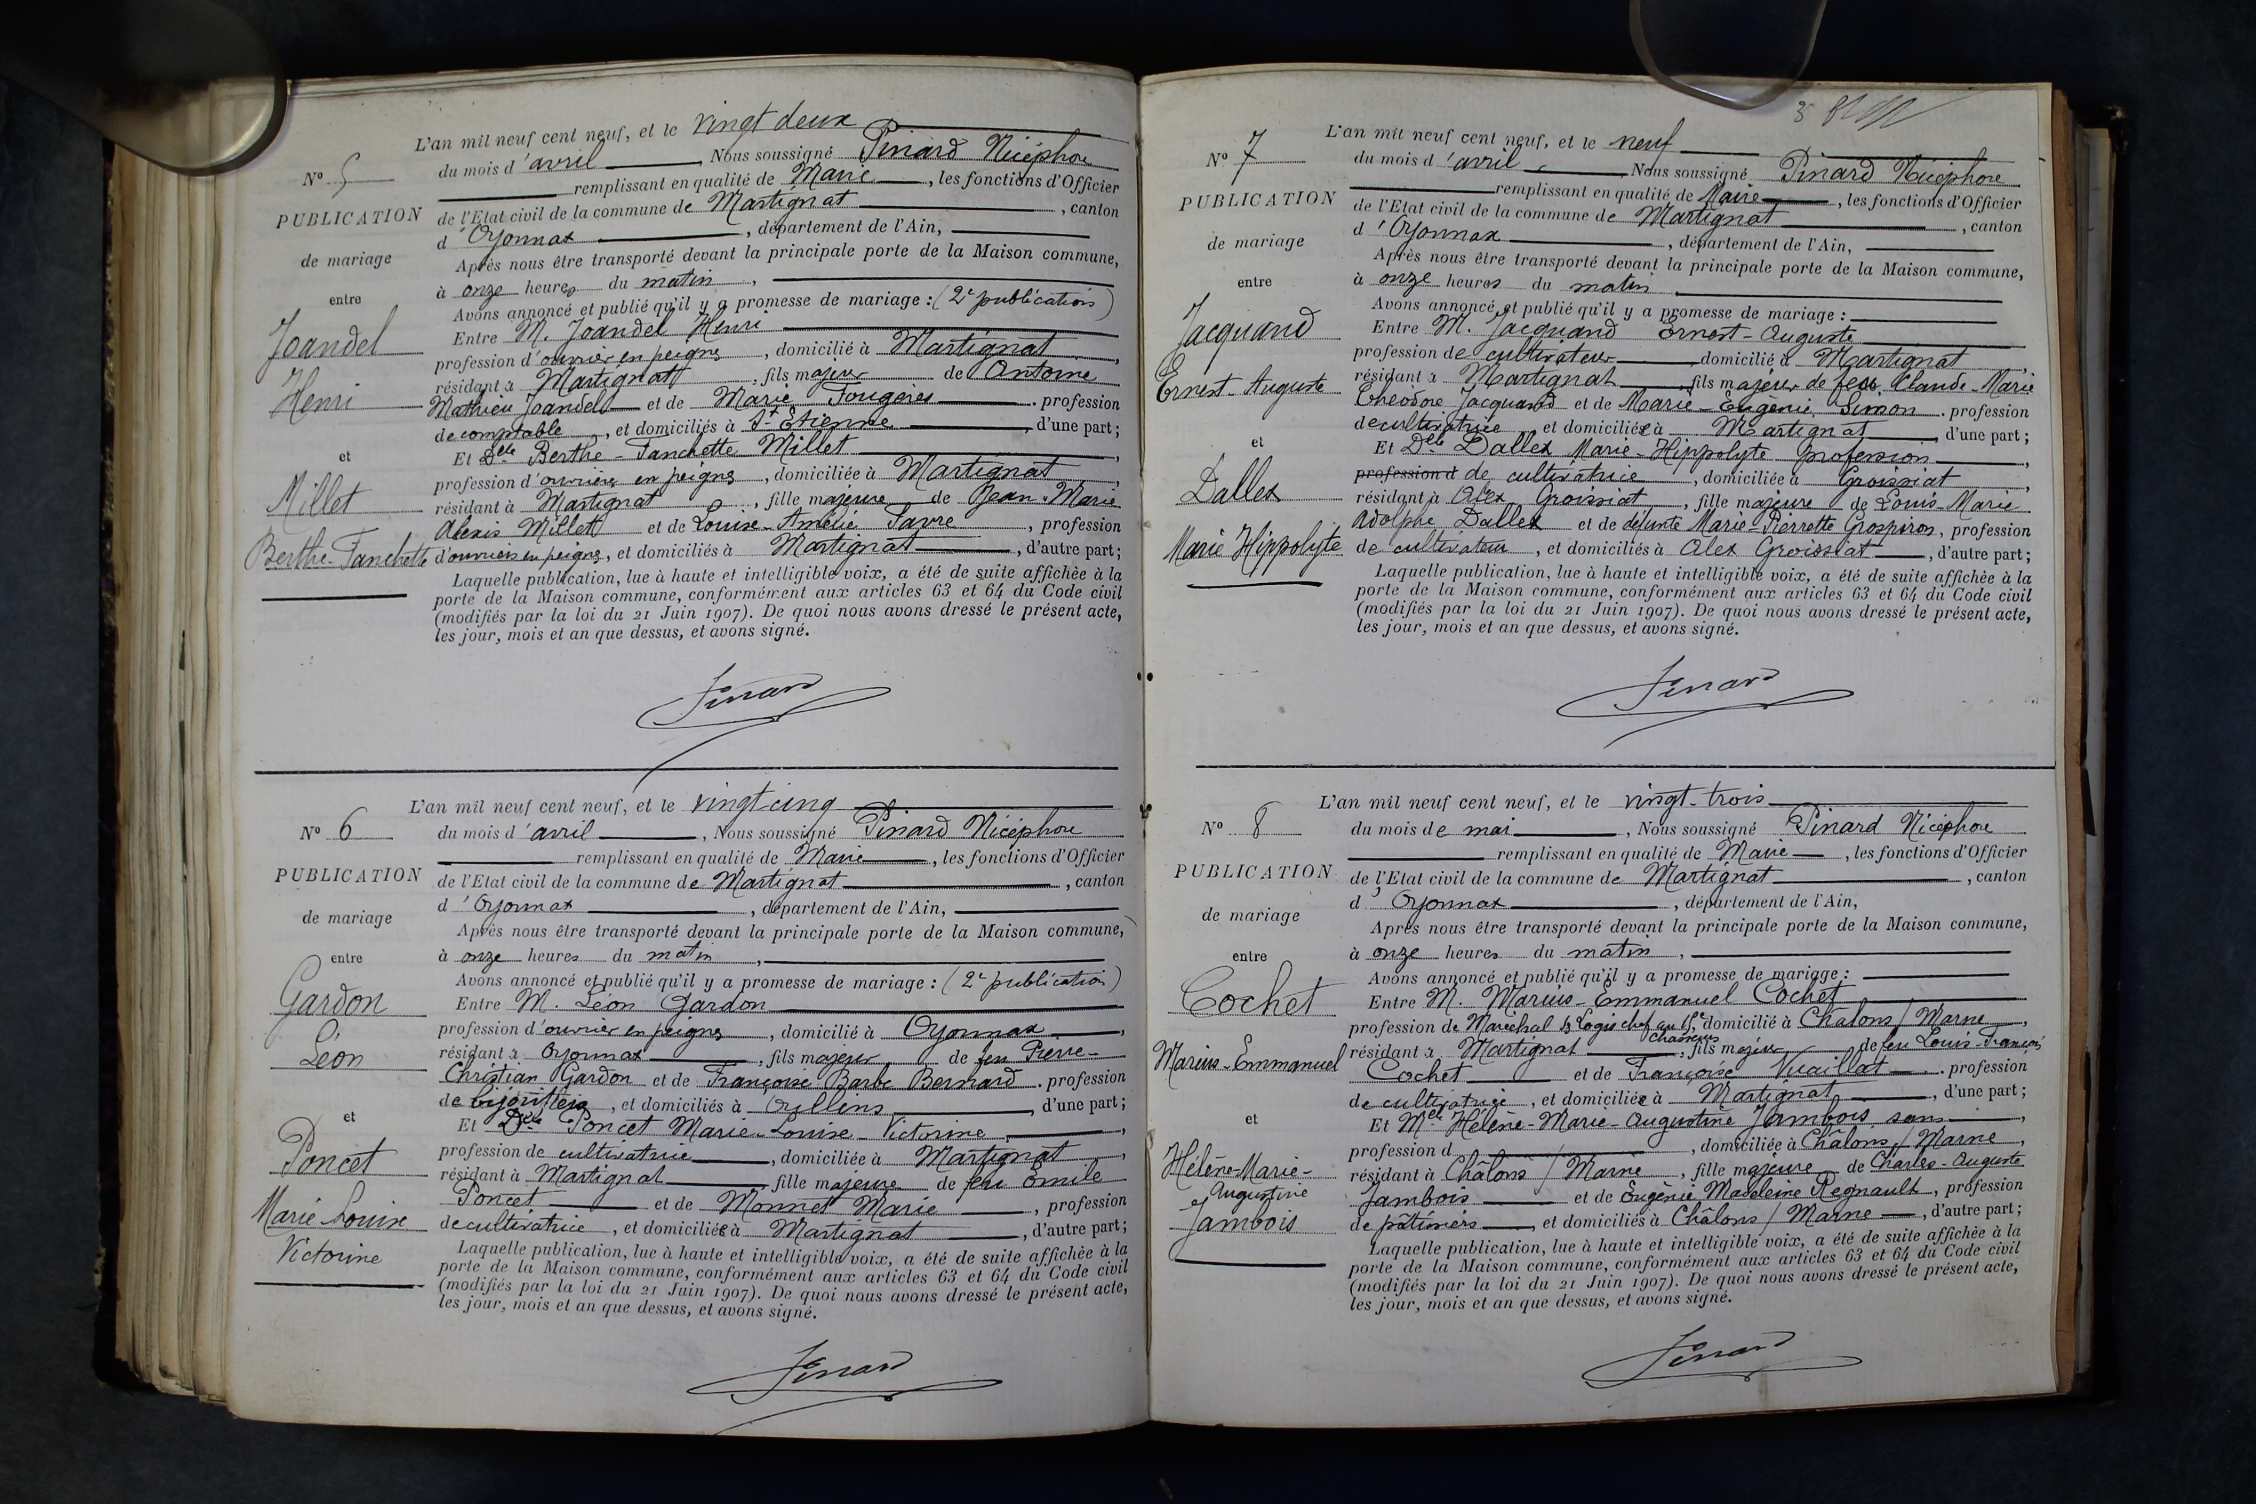 L'an mil neuf cent neuf, et le vingt deux
N° 5
du mois d'avril, Nous soussigné Pinard Nicéphore
remplissant en qualité de Maire, les fonctions d'Officier
PUBLICATION
de l'Etat civil de la commune de Martignat, canton
d'Oyonnax, département de l'Ain,
de mariage
Après nous être transporté devant la principale porte de la Maison commune,
à onze heures du matin,
entre
Avons annoncé et publié qu'il y a promesse de mariage : (2e publication)
Joandel
Entre M. Joandel Henri
profession d'ouvrier en peignes, domicilié à Martignat,
Henri
résidant à Martignat, fils majeur de Antoine
Mathieu Joandel et de Marie Fougères. profession
de comptable, et domiciliés à St Etienne, d'une part ;
et
Et Delle Berthe-Fanchette Millet,
profession d'ouvrière en peignes, domiciliée à Martignat,
Millet
résidant à Martignat, fille majeure de Jean-Marie
Alexis Millet et de Louise-Amélie Favre, profession
Berthe-Fanchette
d'ouvriers en peignes, et domiciliés à Martignat, d'autre part ;
Laquelle publication, lue à haute et intelligible voix, a été de suite affichée à la
porte de la Maison commune, conformément aux articles 63 et 64 du Code civil
(modifiés par la loi du 21 Juin 1907). De quoi nous avons dressé le présent acte,
les jour, mois et an que dessus, et avons signé.
Pinard
L'an mil neuf cent neuf, et le vingt-cinq
N° 6
du mois d'avril, Nous soussigné Pinard Nicéphore
remplissant en qualité de Maire, les fonctions d'Officier
PUBLICATION
de l'Etat civil de la commune de Martignat, canton
d'Oyonnax, département de l'Ain,
de mariage
Après nous être transporté devant la principale porte de la Maison commune,
entre
à onze heures du matin,
Avons annoncé et publié qu'il y a promesse de mariage : (2e publication)
Gardon
Entre M. Léon Gardon
profession d'ouvrier en peignes, domicilié à Oyonnax,
Léon
résidant à Oyonnax, fils majeur de feu Pierre-
Christian Gardon et de Françoise Barbe Bernard. profession
de, et domiciliés à Oullins, d'une part ;
et
Et Delle Poncet Marie-Louise-Victorine,
profession de cultivatrice, domiciliée à Martignat,
Poncet
résidant à Martignat fille majeure de feu Emile
Poncet et de Monnet Marie, profession
Marie Louise
de cultivatrice, et domiciliée à Martignat, d'autre part ;
Victorine
Laquelle publication, lue à haute et intelligible voix, a été de suite affichée à la
porte de la Maison commune, conformément aux articles 63 et 64 du Code civil
(modifiés par la loi du 21 Juin 1907). De quoi nous avons dressé le présent acte,
les jour, mois et an que dessus, et avons signé.
Pinard
L'an mil neuf cent neuf, et le neuf
N° 7
du mois d'avril, Nous soussigné Pinard Nicéphore
remplissant en qualité de Maire, les fonctions d'Officier
PUBLICATION
de l'Etat civil de la commune de Martignat, canton
d'Oyonnax, département de l'Ain,
de mariage
Après nous être transporté devant la principale porte de la Maison commune,
entre
à onze heures du matin
Avons annoncé et publié qu'il y a promesse de mariage :
Jacquand
Entre M. Jacquand Ernest-Auguste
profession de cultivateur domicilié à Martignat,
Ernest-Auguste
résidant à Martignat, fils majeur de feu Claude-Marie
Théodore Jacquand et de Marie-Eugénie Simon. profession
de cultivatrice, et domiciliée à Martignat, d'une part ;
et
Et Delle Dallex Marie-Hippolyte profession,
profession d de cultivatrice, domiciliée à Groissiat,
Dallex
résidant à Alex Groissiat, fille majeure de Louis-Marie
Adolphe Dallex et de défunte Marie-Pierrette Grospiron, profession
Marie Hippolyte
de cultivateur, et domiciliés à Alex Groissiat, d'autre part ;
Laquelle publication, lue à haute et intelligible voix, a été de suite affichée à la
porte de la Maison commune, conformément aux articles 63 et 64 du Code civil
(modifiés par la loi du 21 Juin 1907). De quoi nous avons dressé le présent acte,
les jour, mois et an que dessus, et avons signé.
Pinard
L'an mil neuf cent neuf, et le vingt-trois
N° 8
du mois de mai, Nous soussigné Pinard Nicéphore
remplissant en qualité de Maire, les fonctions d'Officier
PUBLICATION
de l'Etat civil de la commune de Martignat, canton
d'Oyonnax, département de l'Ain,
de mariage
Après nous être transporté devant la principale porte de la Maison commune,
entre
à onze heures du matin,
Avons annoncé et publié qu'il y a promesse de mariage :
Cochet
Entre M. Marius-Emmanuel Cochet
profession de Maréchal des Logis chef au 15e chasseurs domicilié à Châlons / Marne,
Marius-Emmanuel
résidant à Martignat, fils majeur de feu Louis-François
Cochet et de Françoise Vuaillat. profession
de cultivatrice, et domiciliée à Martignat, d'une part ;
et
Et Melle Hélène-Marie-Augustine Jambois, sans,
profession d, domiciliée à Châlons / Marne,
Hélène-Marie-
résidant à Châlons / Marne, fille majeure de Charles-Auguste
Augustine
Jambois et de Eugénie Madeleine Regnault, profession
Jambois
de pâtissiers, et domiciliés à Châlons / Marne, d'autre part ;
Laquelle publication, lue à haute et intelligible voix, a été de suite affichée à la
porte de la Maison commune, conformément aux articles 63 et 64 du Code civil
(modifiés par la loi du 21 Juin 1907). De quoi nous avons dressé le présent acte,
les jour, mois et an que dessus, et avons signé.
Pinard